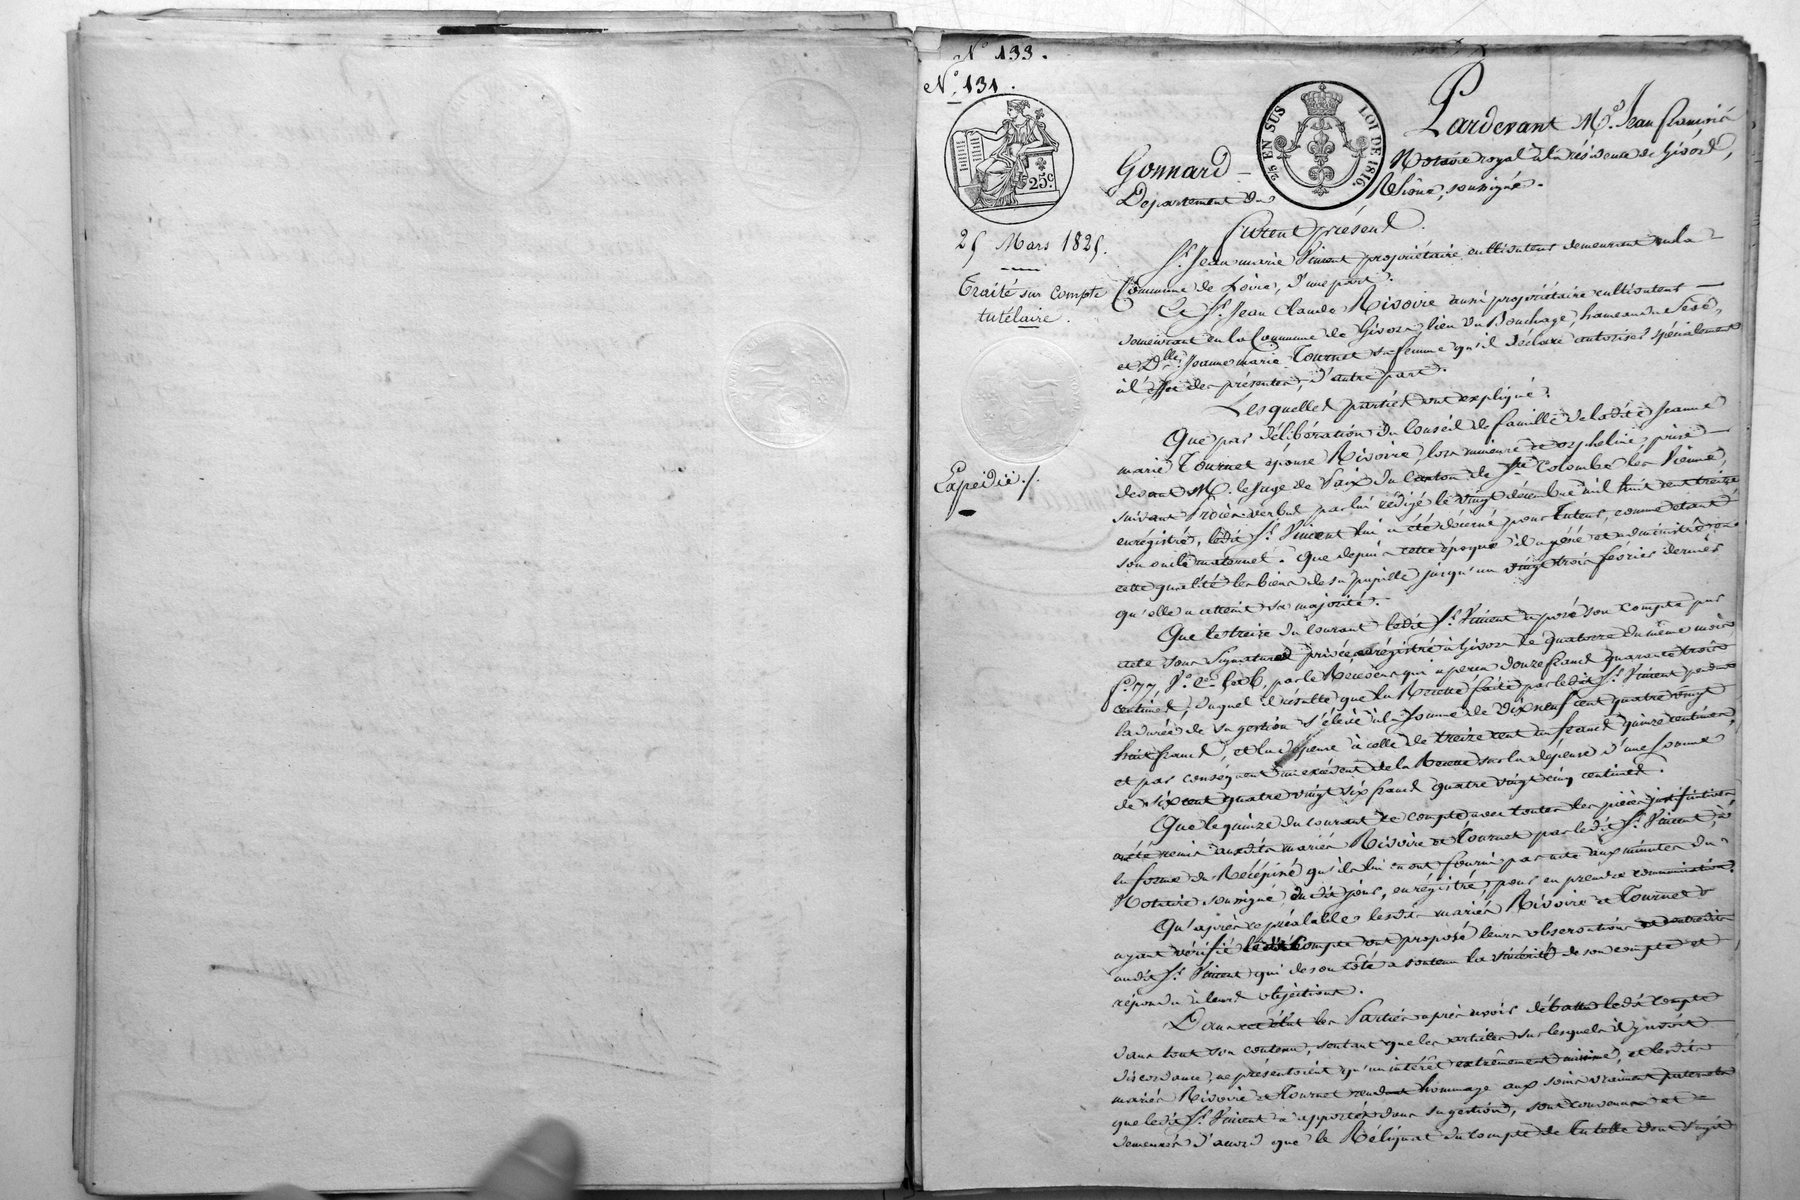 N° 133.
N° 131.
25c.
2/5 EN SUS LOI DE 1816.
25 Mars 1825.
Traité sur compte
tutélaire.
Expédié /.
Pardevant Me. Jean francois
Gonnard Notaire royal à la résidence de Givors,
Département du Rhône, soussigné.
furent présents
Sr. Jean marie Vincent propriétaire cultivateur demeurant en la
Commune de Loire, d'une part.
Et Sr. Jean Claude Rivoire aussi propriétaire cultivateur
demeurant en la Commune de Givors, lieu du Bouchage, hameau de
et Dlle. Jeanne marie Tournet sa femme qu'il déclare autoriser spécialement
à l'effet des présentes, d'autre part.
Lesquelles parties ont expliqué :
Que par délibération du Conseil de famille de ladite Jeanne
marie Tournet épouse Rivoire, lors mineure et orpheline, prise
devant M. le Juge de Paix du Canton de Ste Colombe les Vienne,
suivant Procès verbal par lui rédigé le vingt décembre mil huit cent treize
enrégistré, ledit Sr. Vincent lui a été décerné pour Tuteur, comme étant
son oncle maternel. Que depuis cette époque il a géré et administré en
cette qualité les biens de sa pupille jusqu'au vingt trois février dernier
qu'elle a atteint sa majorité.
Que le treize du courant ledit Sr. Vincent a posé son compte par
acte sous Signatures privées enrégistré à Givors le quatorze du même mois
f° 77 V° Ces. 5 et 6, par le Receveur qui a perçu douze francs quarante trois
centimes, duquel il résulte que la Recette faite par ledit Sr. Vincent pendant
la durée de sa gestion s'élève à la Somme de dix neuf cent quatre vingt
huit francs, et la dépense à celle de treize cent un francs quinze centimes,
et par conséquent un excédent de la Recette sur la dépense d'une somme
de six cent quatre vingt six francs quatre vingt cinq centimes.
Que le quinze du courant ce compte avec toutes les pièces justificatives
a été remis auxdits mariés Rivoire et Tournet par ledit Sr. Vincent, à
la forme du Récépissé qu'ils lui en ont fourni par acte aux minutes du
Notaire soussigné du dit jour, enrégistré, pour en prendre communication.
Qu'après ce préalable lesdits mariés Rivoire et Tournet
ayant vérifié ledit compte ont proposé leurs observations et contredits
audit Sr. Vincent qui de son côté a soutenu la sincérité de son compte et
répondu à leurs objections.
Dans cet état les Parties après avoir débattu ledit compte
dans tout son contenu, sentant que les articles sur lesquels il y avoit
discordance, ne présentoient qu'un intérêt extrêmement minime, et lesdits
mariés Rivoire et Tournet rendant hommage aux soins vraiment paternels
que ledit Sr. Vincent a apportés dans sa gestion, sont convenus et
demeurés d'accord que le Réliquat du compte de Tutelle dont s'agit